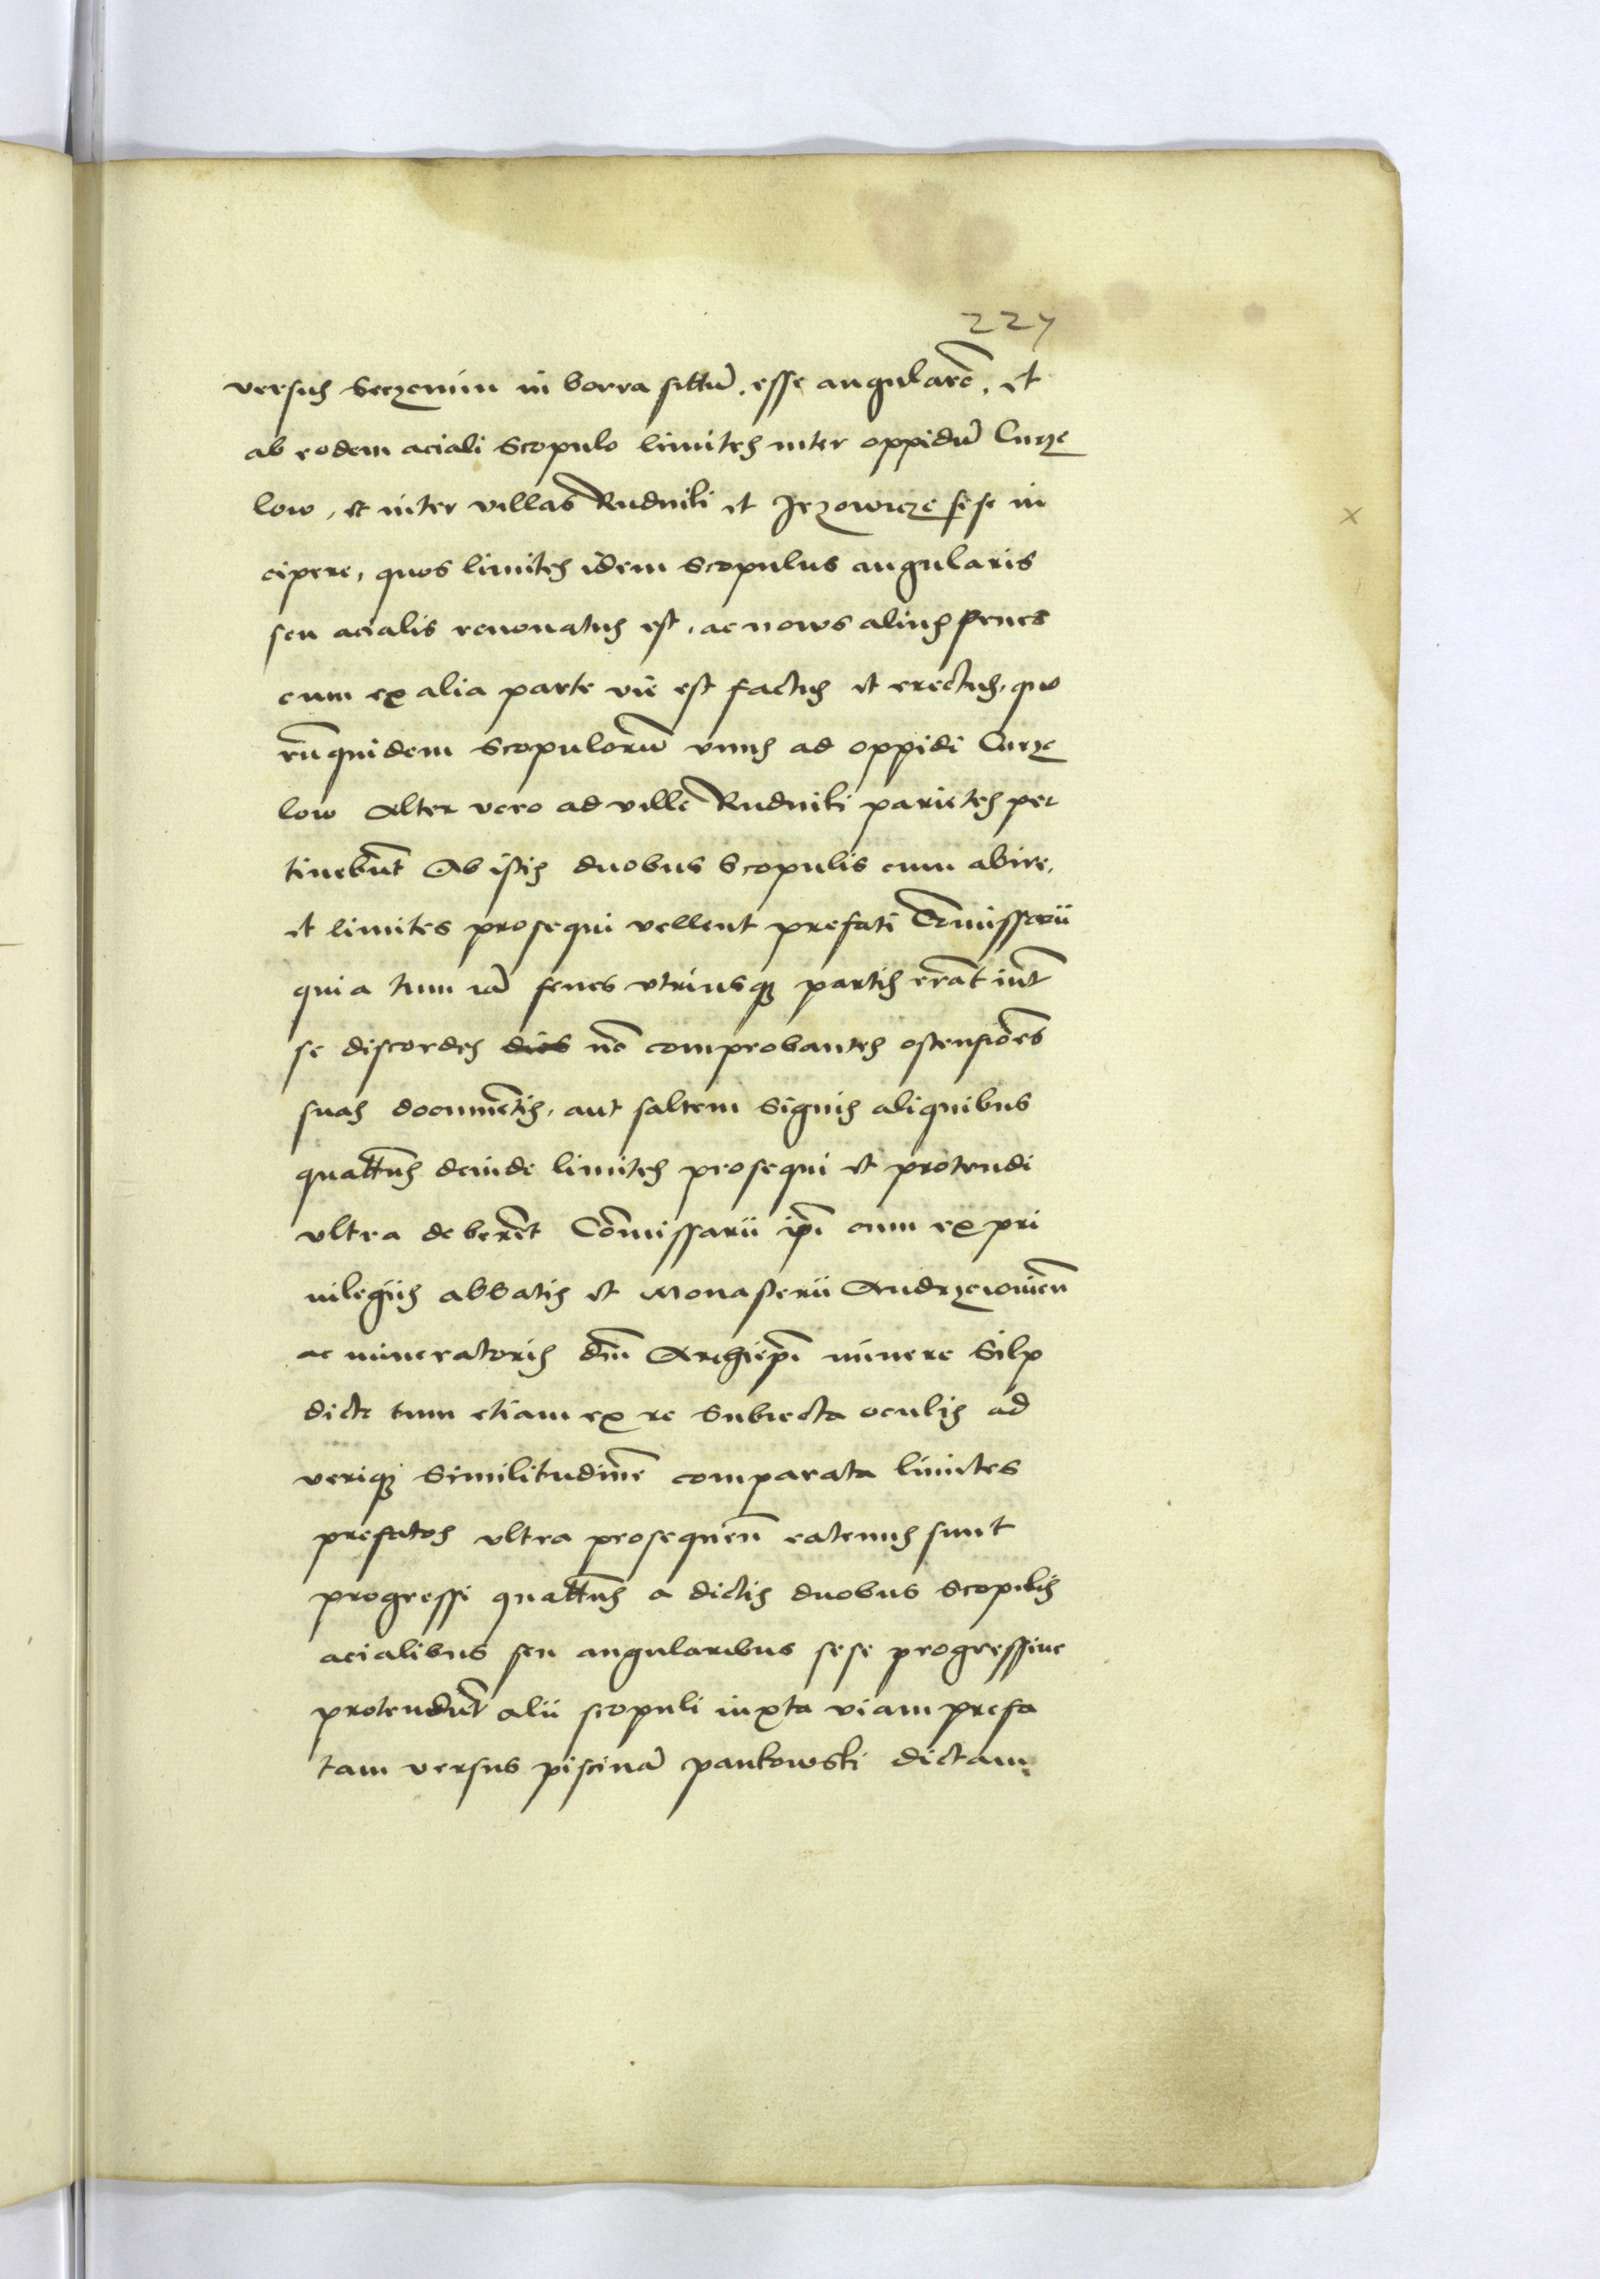 227
versus Seczemin in borra sittũ. esse angularẽ, et
ab eodem aciali Scopulo limites inter oppidũ Curze
low, et inter villas Rudniki et Jezowicze sese in
cipere, quos limites idem Scopulus angularis
seu acialis renouatus est, ac nows alius penes
eum ex alia parte vie est factus et erectus, quo
rũ quidem Scopulorũ vnus ad oppidi Curze
low Alter vero ad ville Rudniki parietes per
tinebũt Ab istis duobus Scopulis cum abire,
et limites prosequi vellent prefati Cõmissarii
quia tum iã senes vtriusq; partis erãt int̃
se discordes dios nõ comprobantes ostensiões
suas documẽtis, aut saltem signis aliquibus
quatt̃us deinde limites prosequi et protendi
vltra deberẽt Cõmissarii ip̃i cum ex pri
uilegiis abbatis et Monasterii Andrzeiouieñ
ac mineratoris dñi Archiep̃i minere Silp
dicte tum etiam ex re subiecta oculis ad
veriq; similitudinẽ comparata limites
prefatos vltra prosequeñ eatenus sunt
progressi quatt̃us a dictis duobus Scopulis
acialibus seu angularibus sese progressiue
protendũt alii scopuli iuxta viam prefa
tam versus piscinã pankowski dictam
x